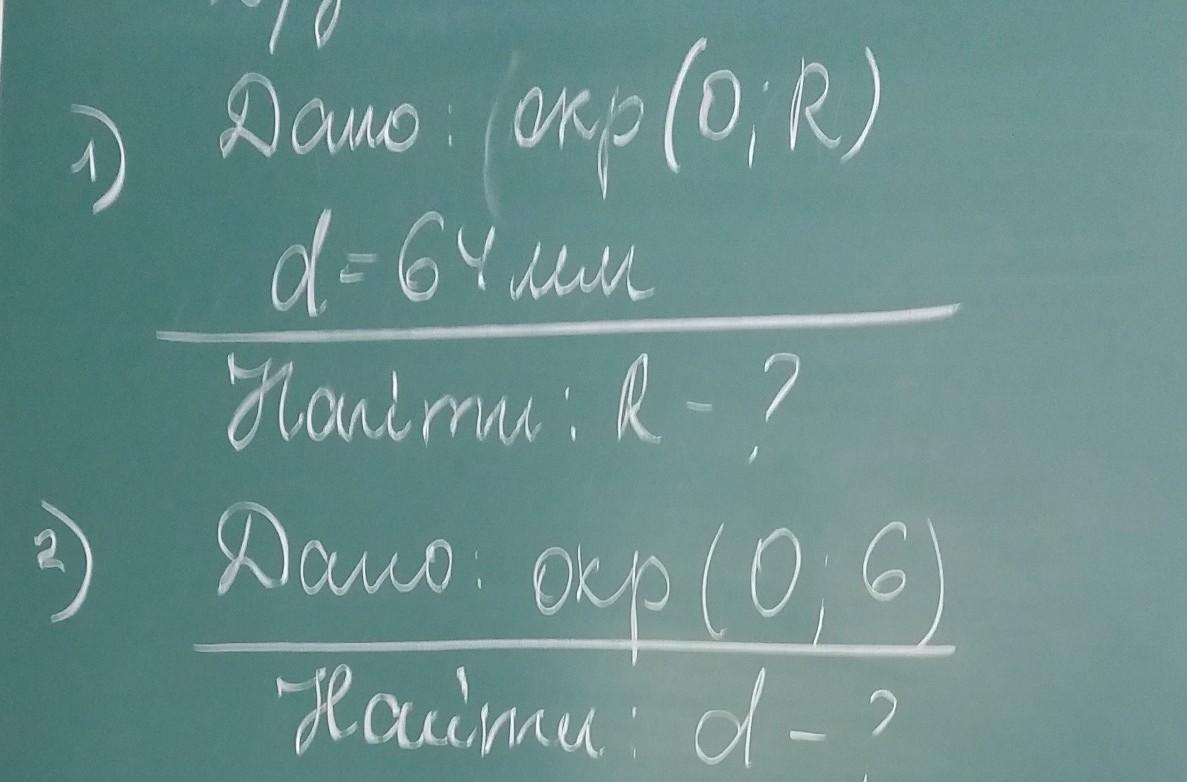 1) Дано: окр(O; R)
d = 64 мм
Найти: R - ?
2) Дано: окр(O; 6)
Найти: d - ?